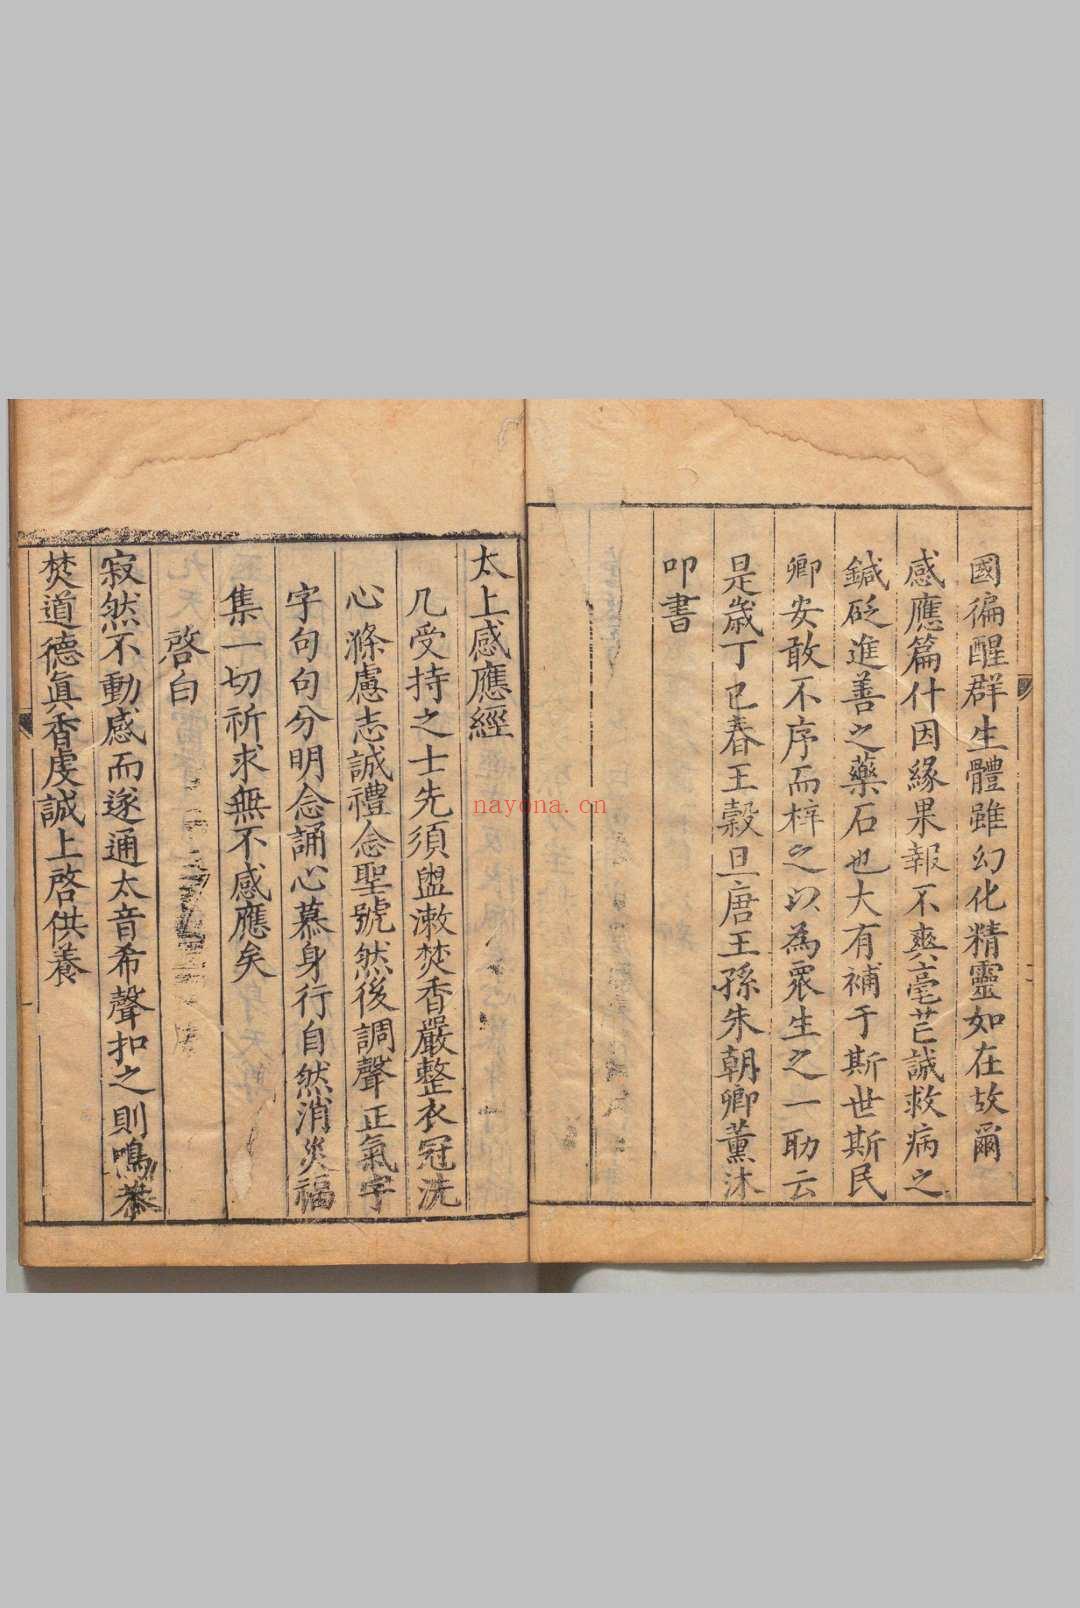 國徧醒群生體雖幻化精靈如在故爾
感應篇什因緣果報不爽毫芒誠救病之
鍼砭進善之藥石也大有補于斯世斯民
卿安敢不序而梓之以為衆生之一助云
是歲丁巳春王穀旦唐王孫朱朝卿薰沐
叩書
太上感應經
凡受持之士先須盥漱焚香嚴整衣冠洗
心滌慮志誠禮念聖號然後調聲正氣字
字句句分明念誦心慕身行自然消災福
集一切祈求無不感應矣
啓白
寂然不動感而遂通太音希聲扣之則鳴恭
焚道德眞香虔誠上啓供養
nayona.cn